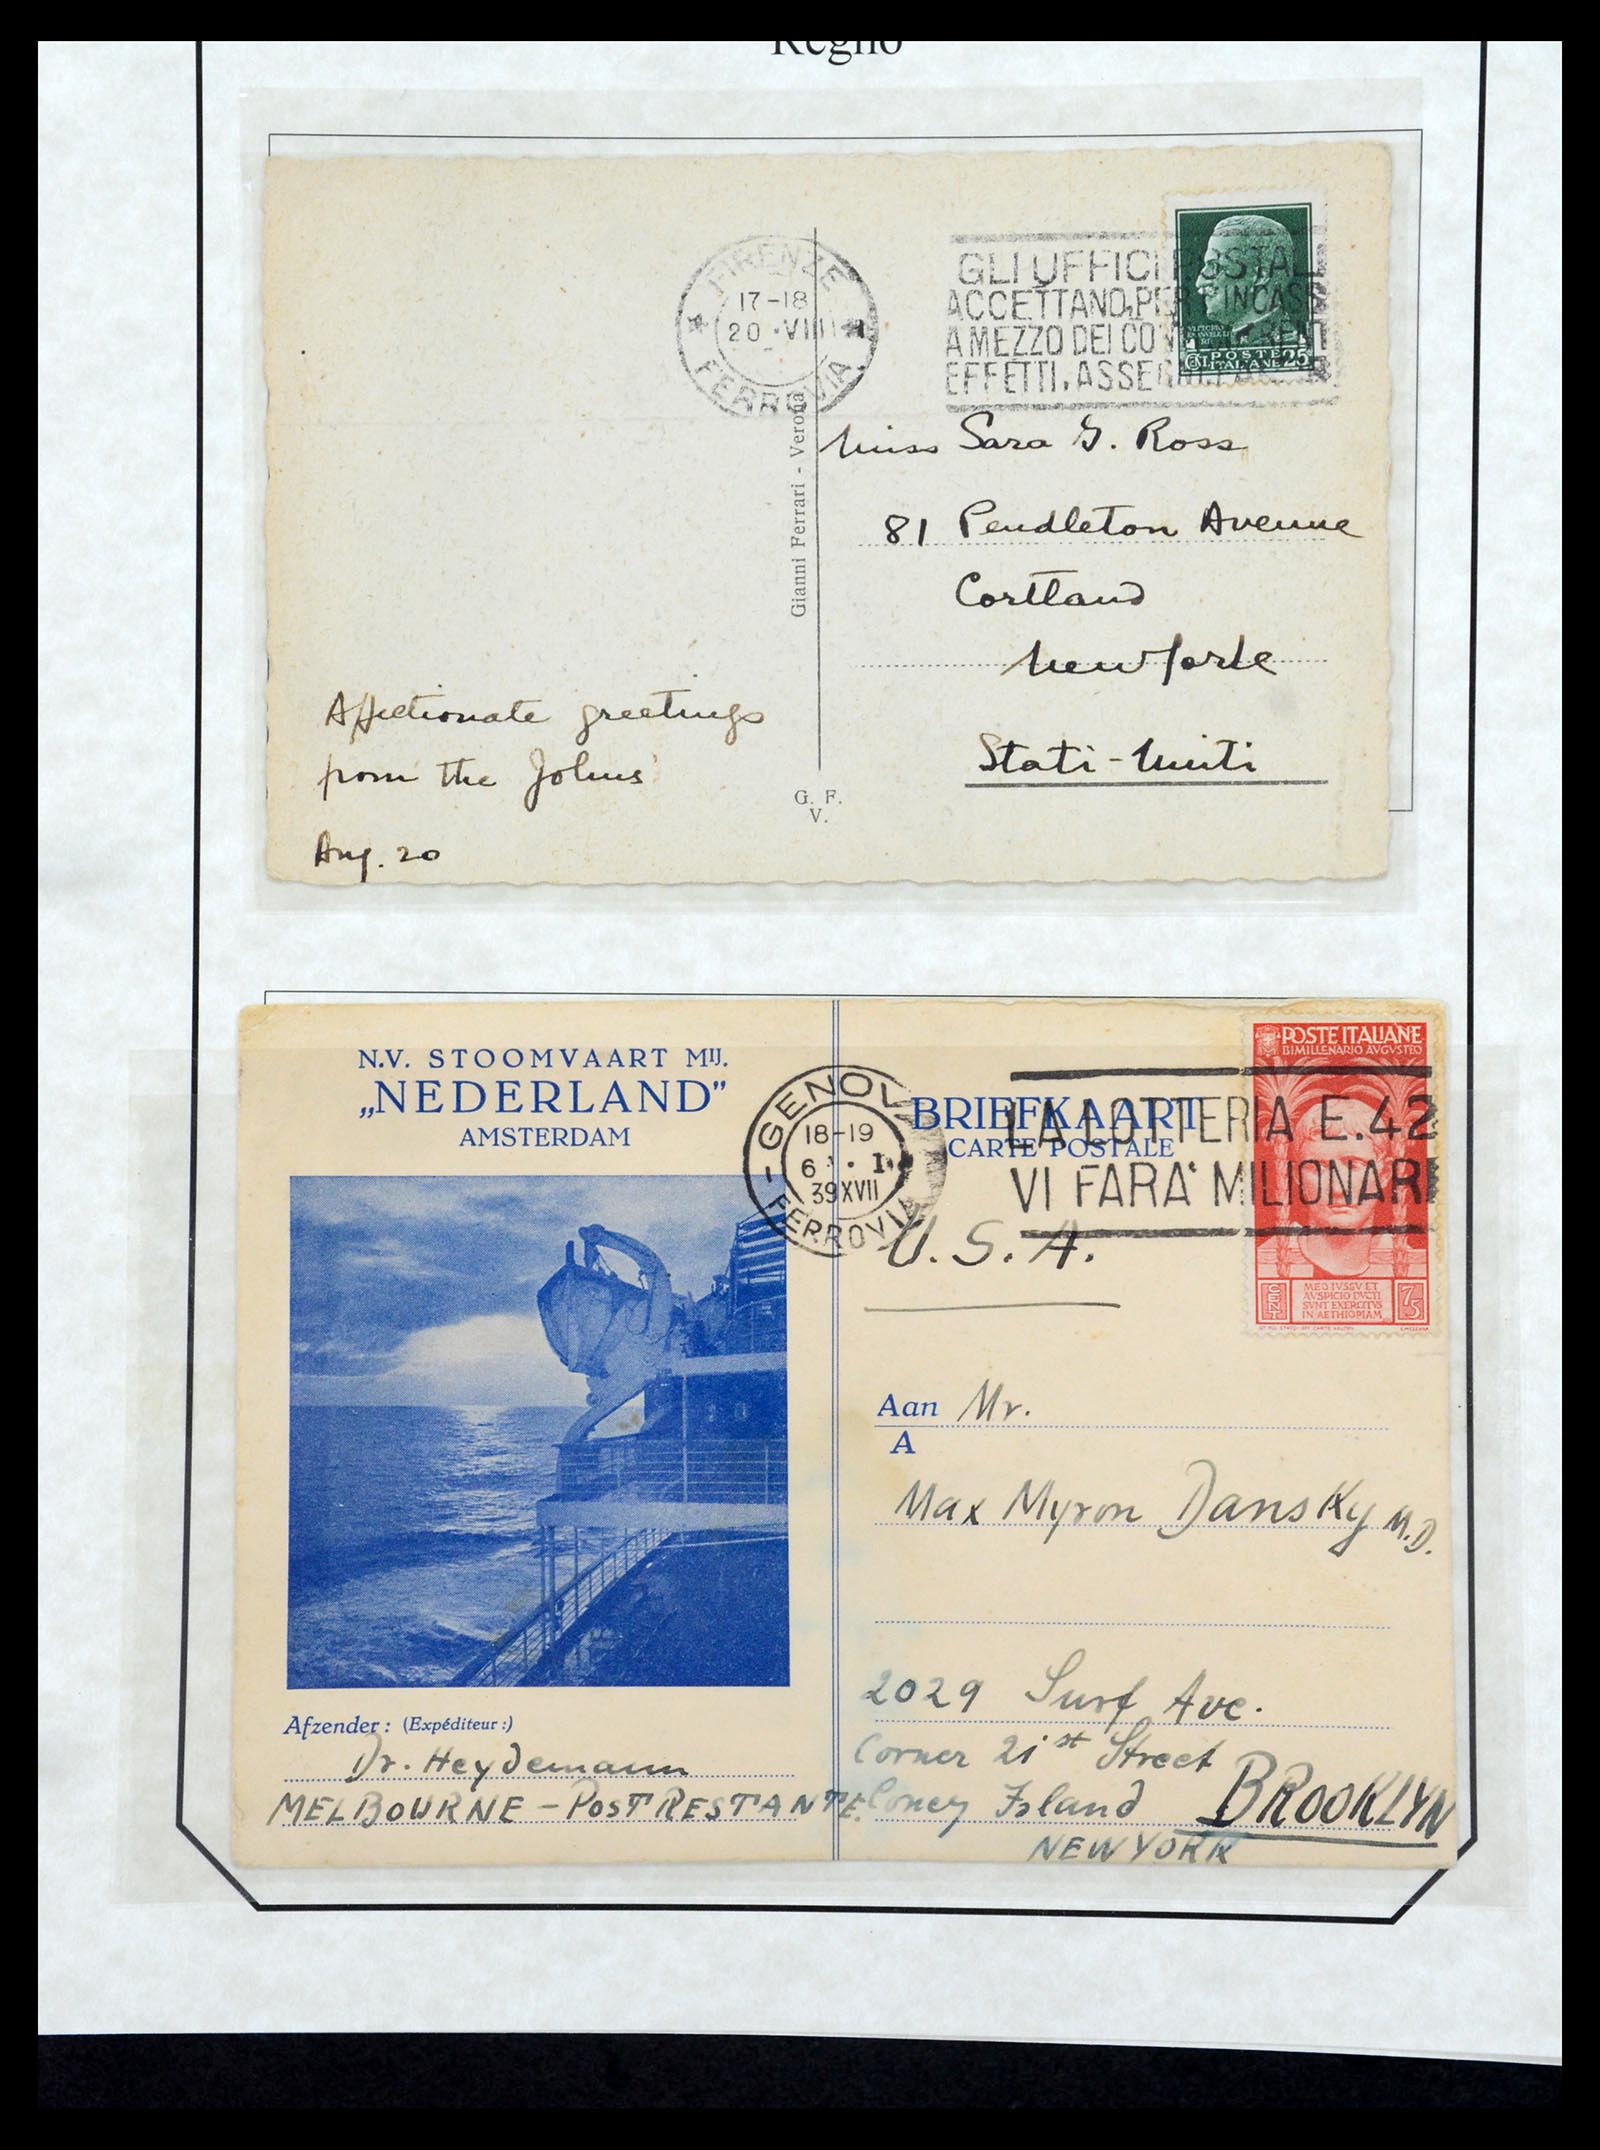 Regno
FIRENZE
17-18
20 · VIII
FERROVIA
GLI UFFICI POSTALI
ACCETTANO, PER L'INCASS
A MEZZO DEI CON
EFFETTI, ASSE
VITTORIO
POSTE
ITALIANE 25
Gianni Ferrari - Verona
Miss Sara G. Ross
81 Pendleton Avenue
Cortland
New York
Stati-Uniti
Affectionate greetings
from the Johns
Aug. 20
G. F.
V.
N.V. STOOMVAART MIJ.
„NEDERLAND”
AMSTERDAM
GENOVA
18-19
6 · I
39 XVII
FERROVIA
BRIEFKAART
CARTE POSTALE
LA LOTTERIA E.42
VI FARA' MILIONARI
POSTE ITALIANE
BIMILLENARIO AVGVSTEO
MEO IVSSV ET
AVSPICIO DVCTI
SVNT EXERCITVS
IN AETHIOPIAM
CENT 75
U.S.A.
Aan Mr.
A
Max Myron Dansky M.D.
2029 Surf Ave.
Corner 21st Street
Coney Island BROOKLYN
NEW YORK
Afzender: (Expéditeur:)
Dr. Heydemann
MELBOURNE - POST RESTANTE.